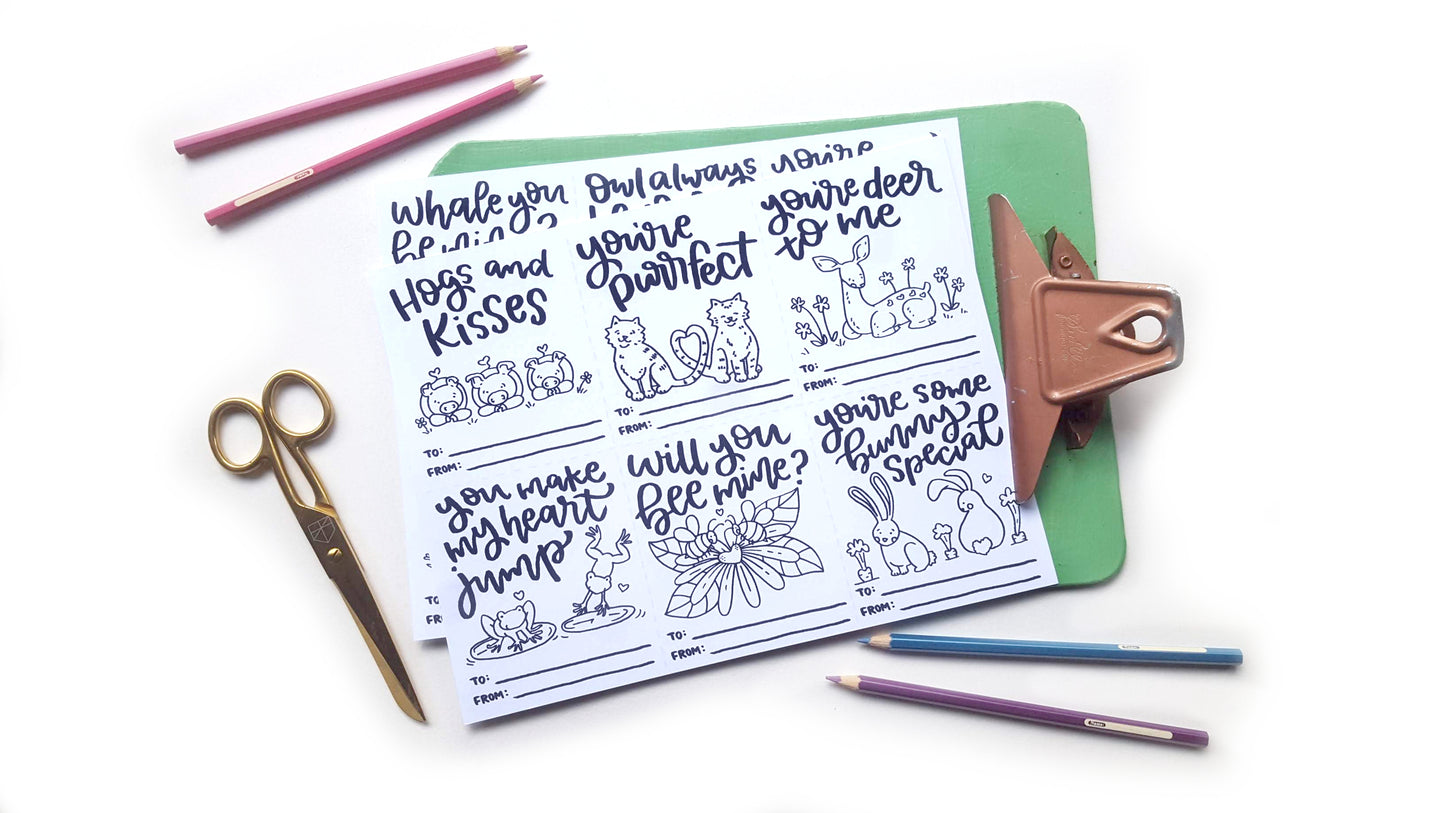 Whale you
Owl always
you're
Hogs and
Kisses
TO:
FROM:
you're
purrfect
TO:
FROM:
you're deer
to me
TO:
FROM:
you make
my heart
jump
TO:
FROM:
will you
bee mine?
TO:
FROM:
you're some
bunny
special
TO:
FROM: